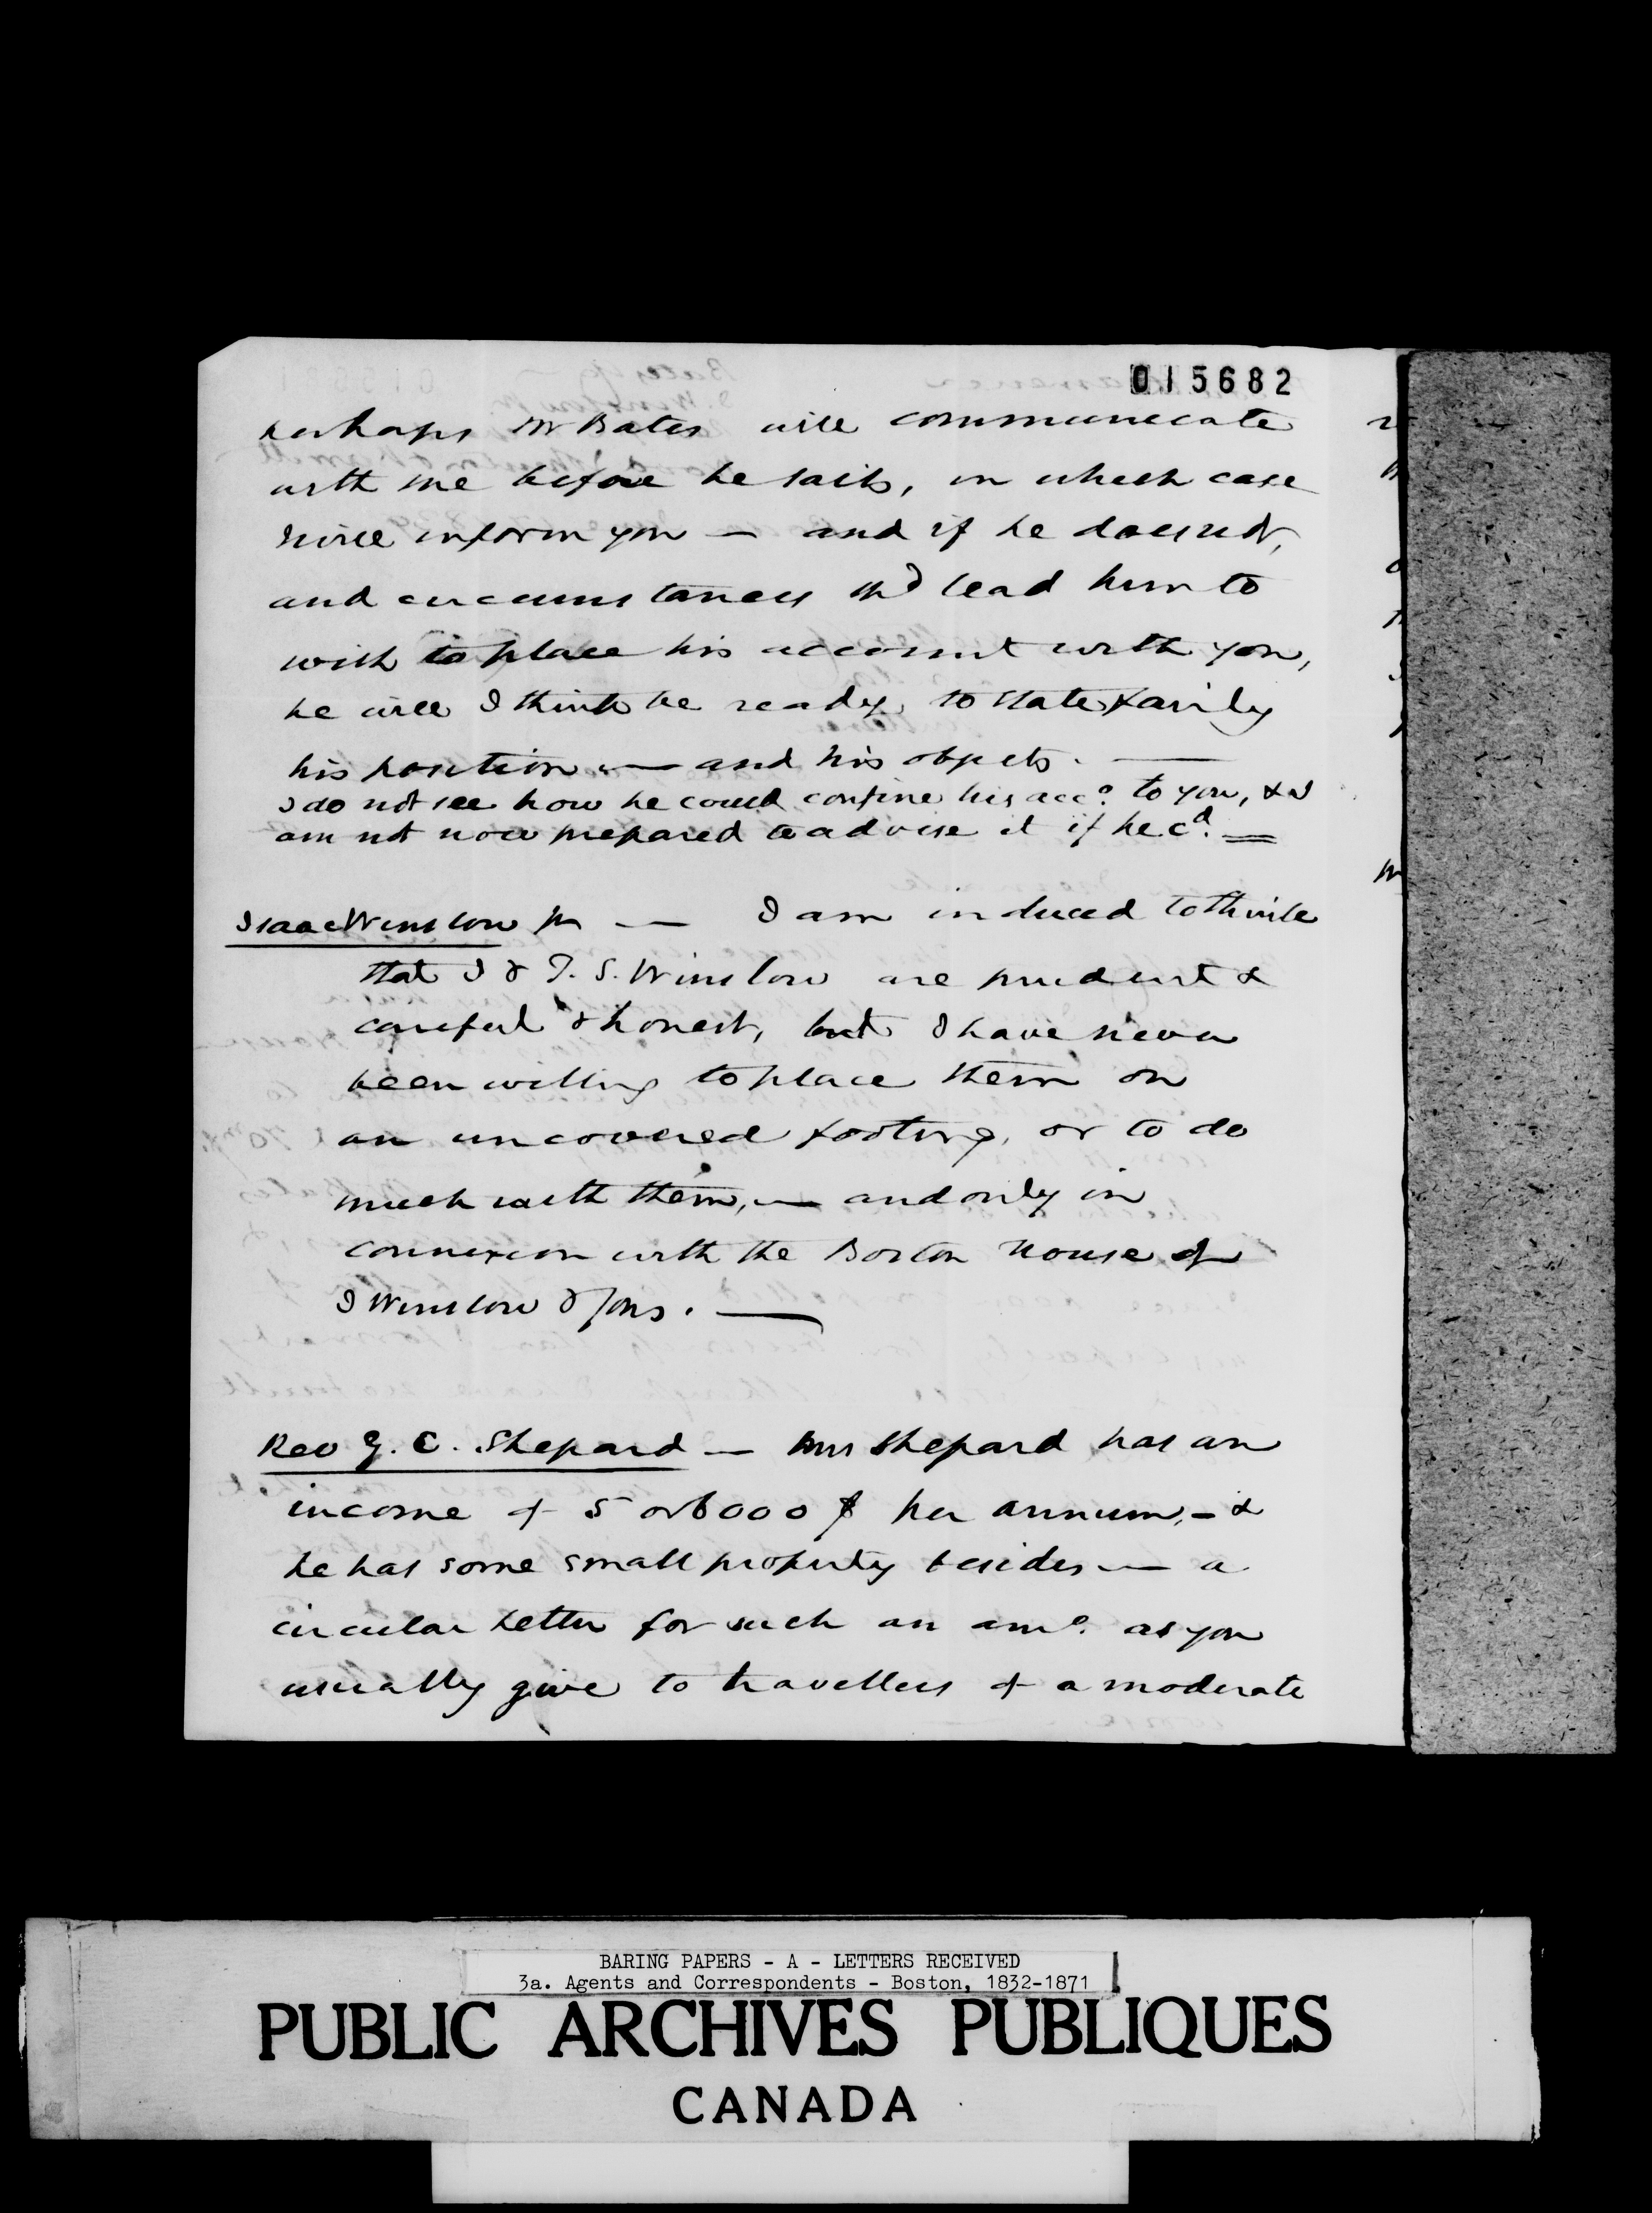 015682
perhaps Mr Bates will communicate
with me before he sails, in which case
I will inform you — and if he does not,
and circumstances shd lead him to
wish to place his account with you,
he will I think be ready to state fairly
his position — and his objects. —
I do not see how he could confine his acco. to you, & I
am not now prepared to advise it if he cd. =
Isaac Winslow Jr — I am induced to think
that I & T. S. Winslow are prudent &
careful & honest, but I have never
been willing to place them on
an uncovered footing, or to do
much with them, — and only in
connexion with the Boston House of
I Winslow & Sons. —
Rev G. C. Shepard — Mrs Shepard has an
income of 5 or 6000 $ per annum, - &
he has some small property besides — a
circular letter for such an amo. as you
usually give to travellers of a moderate
BARING PAPERS - A - LETTERS RECEIVED
3a. Agents and Correspondents - Boston, 1832-1871
PUBLIC ARCHIVES PUBLIQUES
CANADA